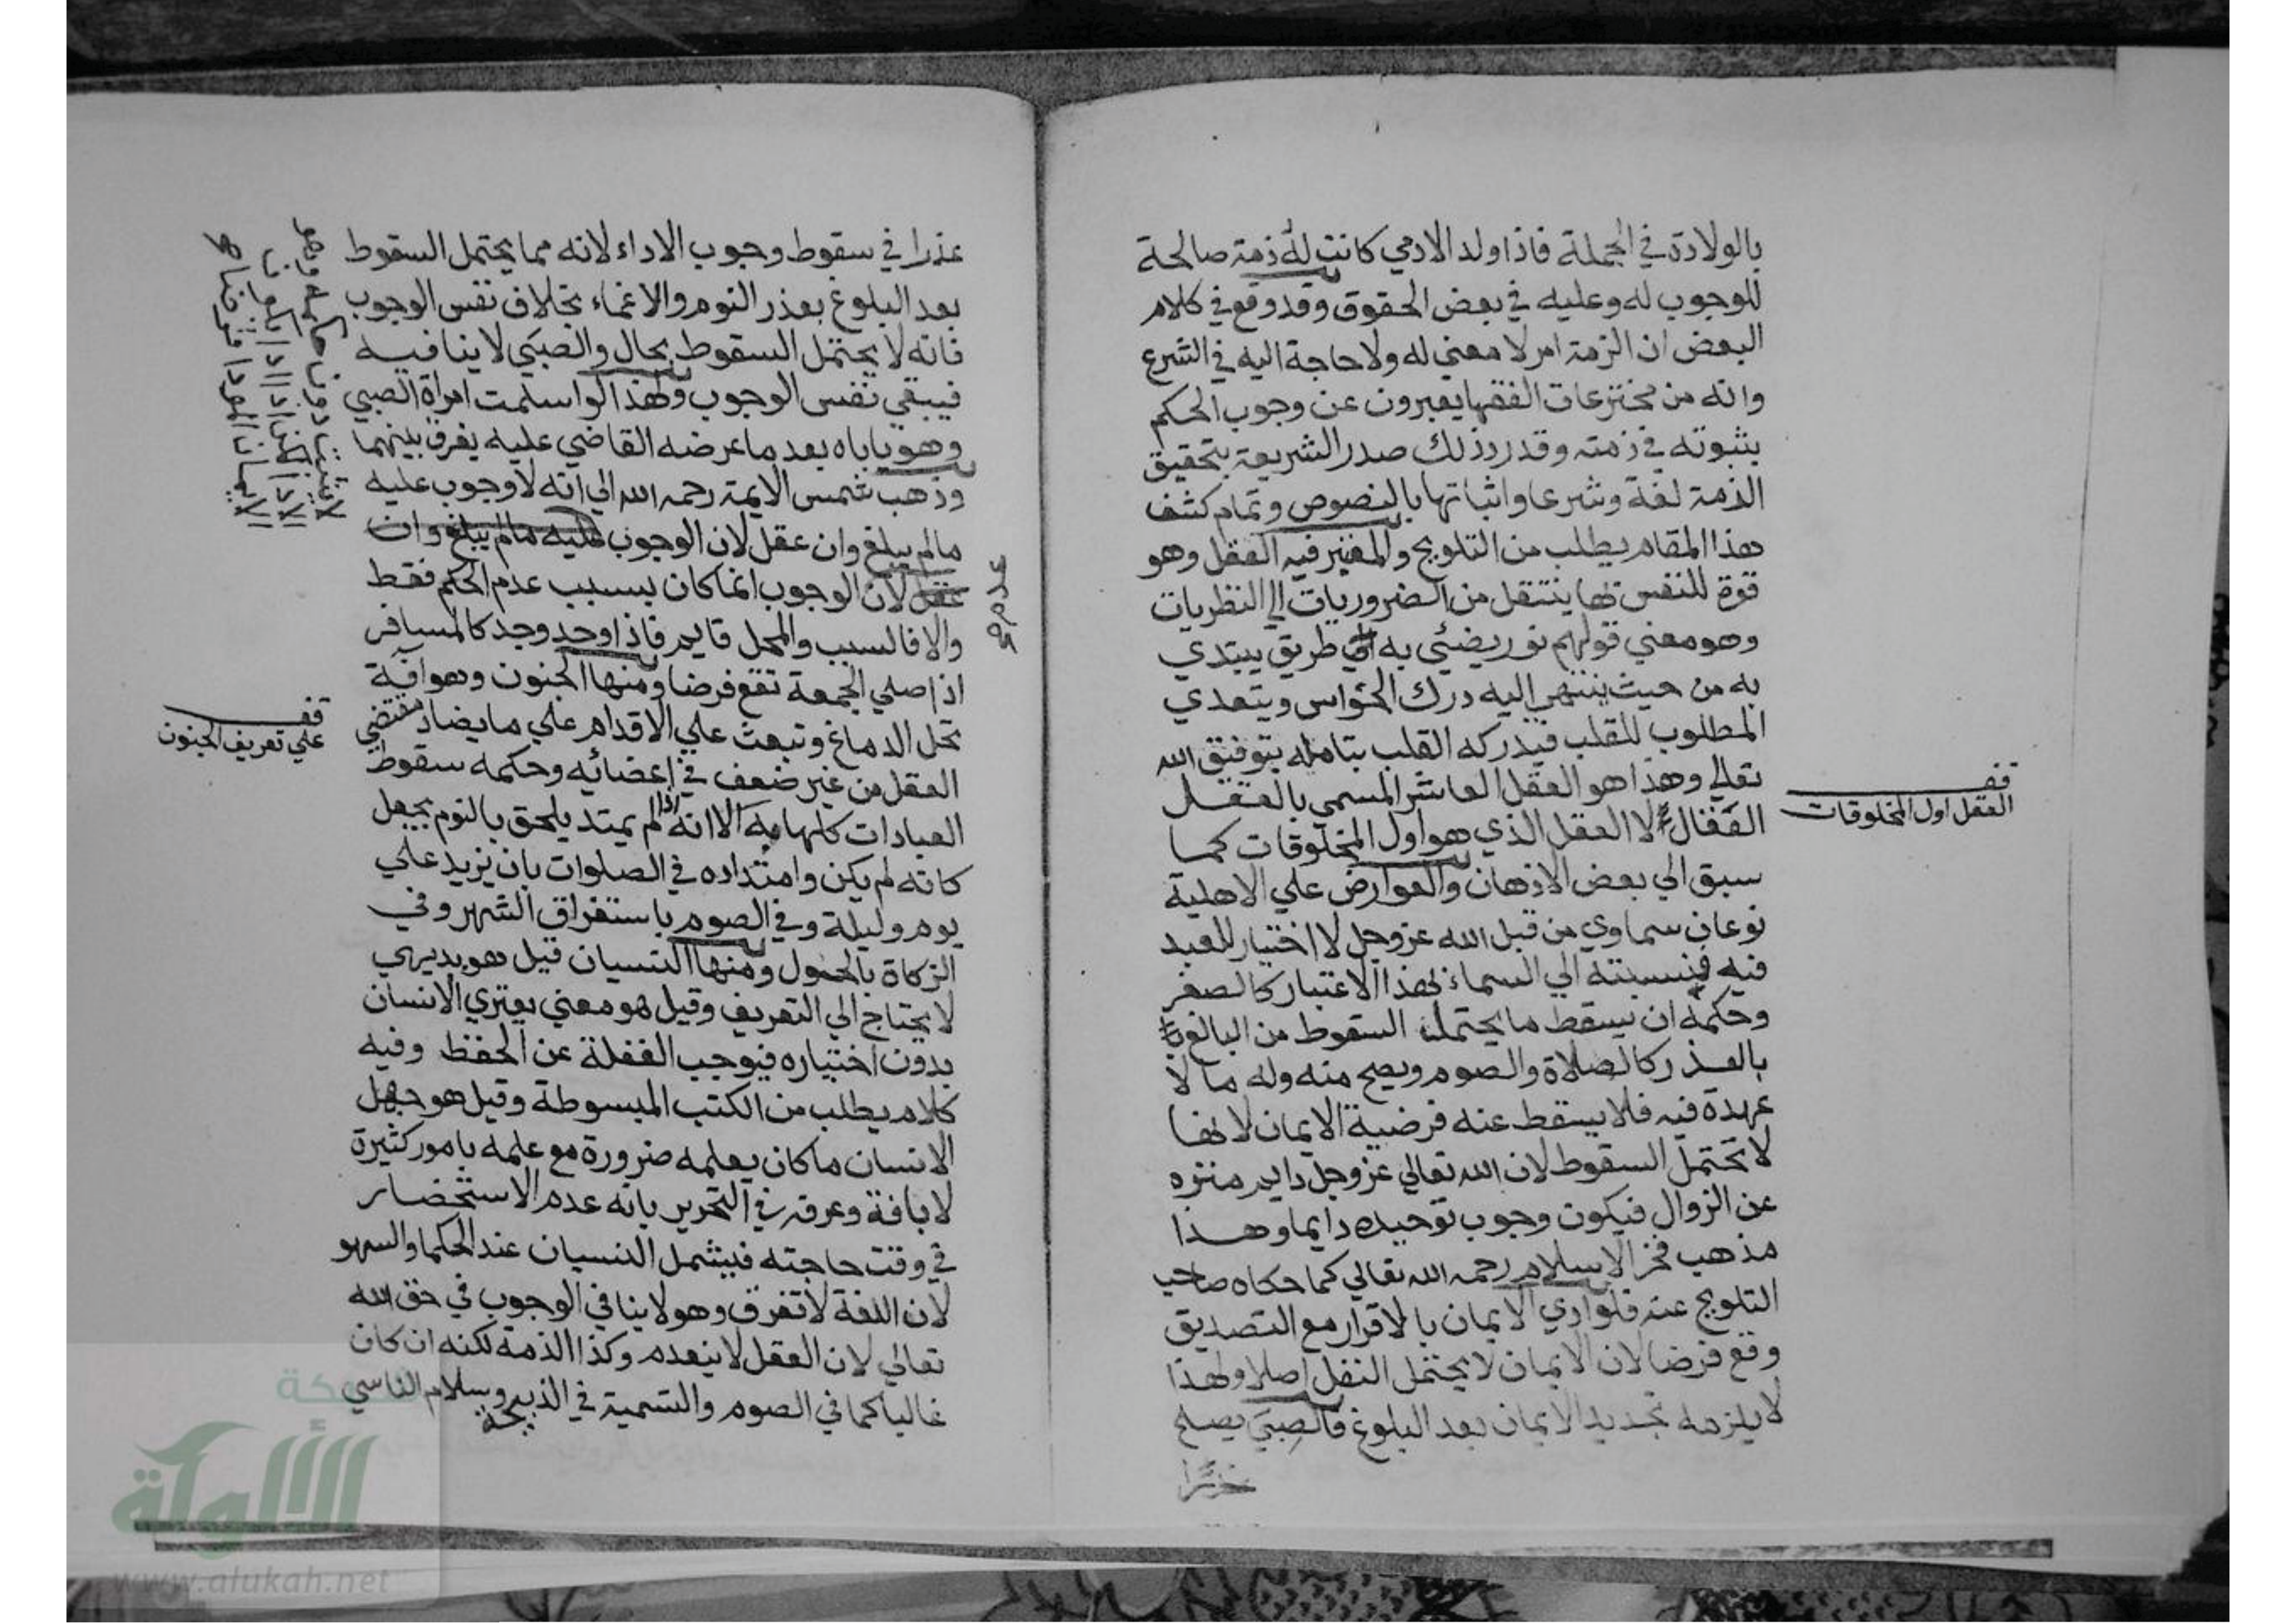 بالولادة في الجملة فاذا ولد الادمي كانت له ذمة صالحة
للوجوب له وعليه في بعض الحقوق وقد وقع في كلام
البعض ان الزمة امر لا معني له ولا حاجة اليه في الشرع
وانه من مخترعات الفقها يعبرون عن وجوب الحكم
بثبوته في ذمته وقد رد ذلك صدر الشريعة بتحقيق
الذمة لغة وشرعا واثباتها بالنصوص وتمام كشف
هذا المقام يطلب من التلويح والمعتبر فيه العقل وهو
قوة للنفس بها ينتقل من الضروريات الي النظريات
وهو معني قولهم نور يضئي به طريق يبتدي
به من حيث ينتهي اليه درك الحواس ويتعدي
المطلوب للقلب فيدركه القلب بتامله بتوفيق الله
تعالي وهذا هو العقل العاشر المسمي بالعقل
الفعال لا العقل الذي هو اول المخلوقات كما
قف
العقل اول المخلوقات
سبق الي بعض الاذهان والعوارض علي الاهلية
نوعان سماوي من قبل الله عز وجل لا اختيار للعبد
فيه فنسبته الي السماء بهذا الاعتبار كالصغر
وحكمه ان يسقط ما يحتمل السقوط من البالغ
بالعذر كالصلاة والصوم ويصح منه وله ما لا
عهدة فيه فلا يسقط عنه فرضية الايمان لانها
لا تحتمل السقوط لان الله تعالي عز وجل دايم منزه
عن الزوال فيكون وجوب توحيده دايما وهذا
مذهب فخر الاسلام رحمه الله تعالي كما حكاه صاحب
التلويح عنه فلو ادي الايمان بالاقرار مع التصديق
وقع فرضا لان الايمان لا يحتمل النفل اصلا ولهذا
لا يلزمه تجديد الايمان بعد البلوغ فالصبي يصلح
عذرا
عذرا في سقوط وجوب الاداء لانه مما يحتمل السقوط
بعد البلوغ بعذر النوم والاغماء بخلاف نفس الوجوب
فانه لا يحتمل السقوط بحال والصبي لا ينافيه
فيبقي نفس الوجوب ولهذا لو اسلمت امراة الصبي
وهو ياباه بعد ما عرضه القاضي عليه يفرق بينهما
وذهب شمس الايمة رحمه الله الي انه لا وجوب عليه
ما لم يبلغ وان عقل لان الوجوب عليه ما لم يبلغ وان
عقل لان الوجوب انما كان بسبب عدم الحكم فقط
عدم
والا فالسبب والمحل قايم فاذا وجد وجد كالمسافر
اذا صلي الجمعة تقع فرضا ومنها الجنون وهو افة
تحل الدماغ وتبعث علي الاقدام علي ما يضاد مقتضي
قف
علي تعريف الجنون
العقل من غير ضعف في اعضائه وحكمه سقوط
العبادات كلها به الا انه اذا لم يمتد يلحق بالنوم بجعل
كانه لم يكن وامتداده في الصلوات بان يزيد علي
يوم وليلة وفي الصوم باستغراق الشهر وفي
الزكاة بالحول ومنها النسيان قيل هو بديهي
لا يحتاج الي التعريف وقيل هو معني يعتري الانسان
بدون اختياره فيوجب الغفلة عن الحفظ وفيه
كلام يطلب من الكتب المبسوطة وقيل هو جهل
الانسان ما كان يعلمه ضرورة مع علمه بامور كثيرة
لا بافة وعرفه في التحرير بانه عدم الاستحضار
في وقت حاجته فيشمل النسيان عند الحكما والسهو
لان اللغة لا تفرق وهو لا ينافي الوجوب في حق الله
تعالي لان العقل لا ينعدم وكذا الذمة لكنه ان كان
غالبا كما في الصوم والتسمية في الذبيحة وسلام الناسي
شبكة
الألوكة
www.alukah.net